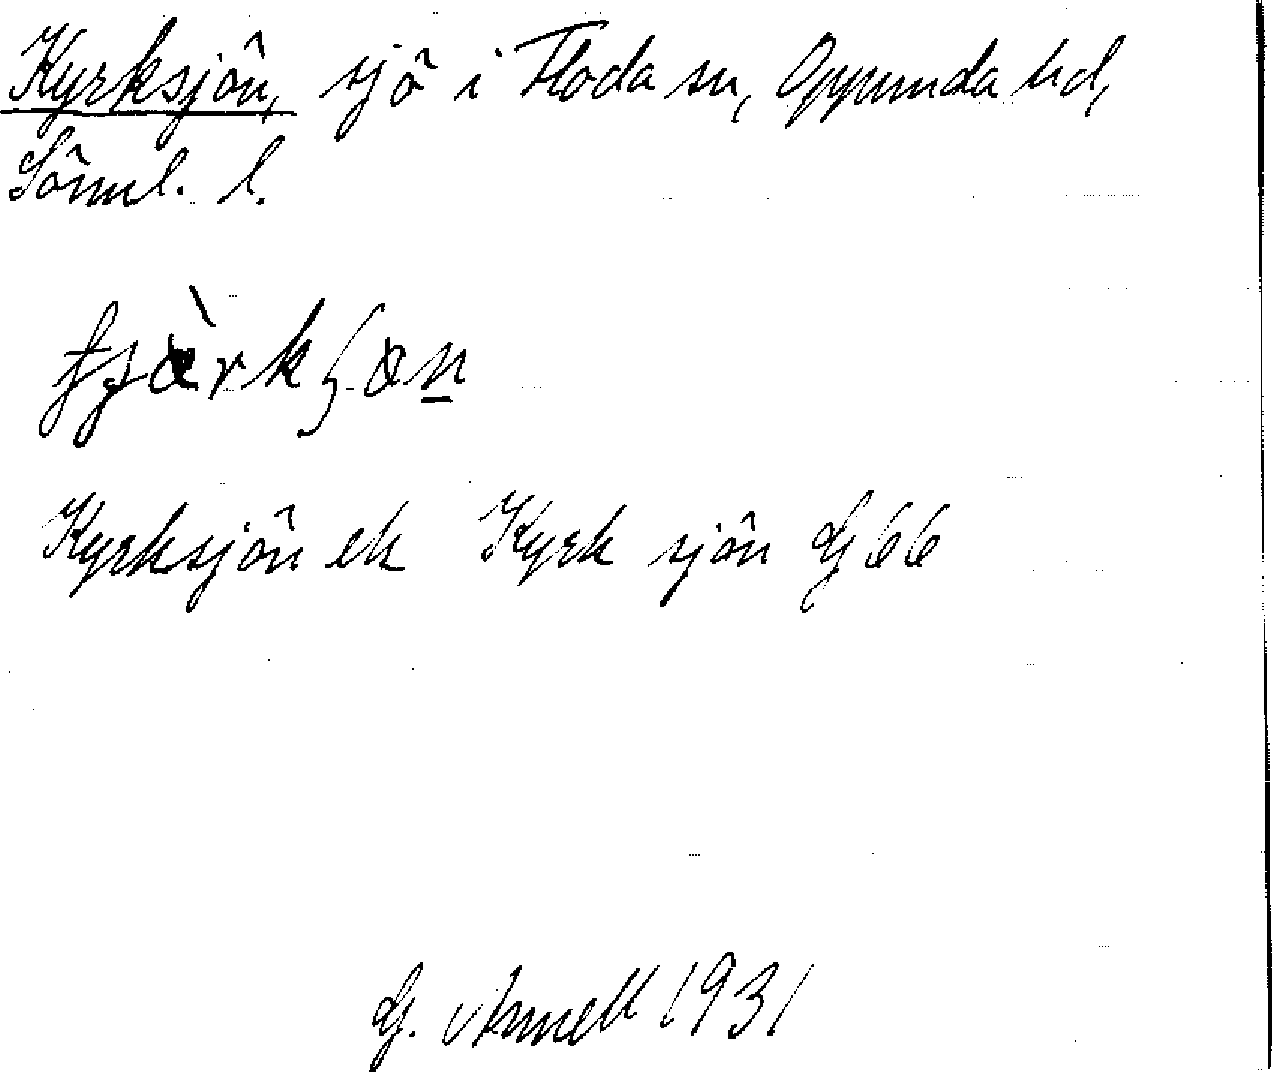 Kyrksjön, sjö i Floda sn, Oppunda hd,
Söml. l.
Kyrksjön ek Kyrk sjön G 66
G. Annell 1931